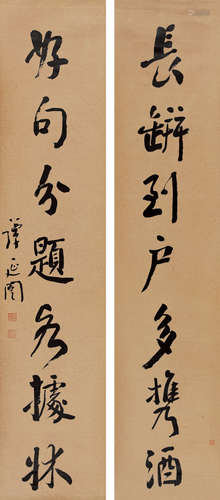 長缾到戶多携酒
好句分題各據牀
譚延闓